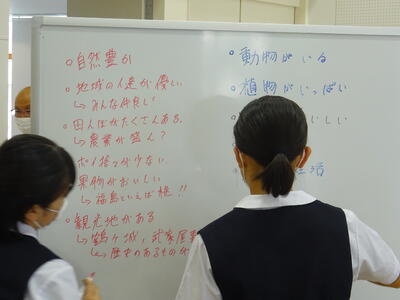 ・自然豊か
・地域の人達が優しい
↳みんな仲良し
・田んぼがたくさんある。
↳農業が盛ん?
ポイ捨てが少ない
果物がおいしい
↳福島といえば桃!!
・観光地がある
↳鶴ヶ城、武家屋敷
↳歴史のあるものが
・動物がいる
・植物がいっぱい
いしい
活